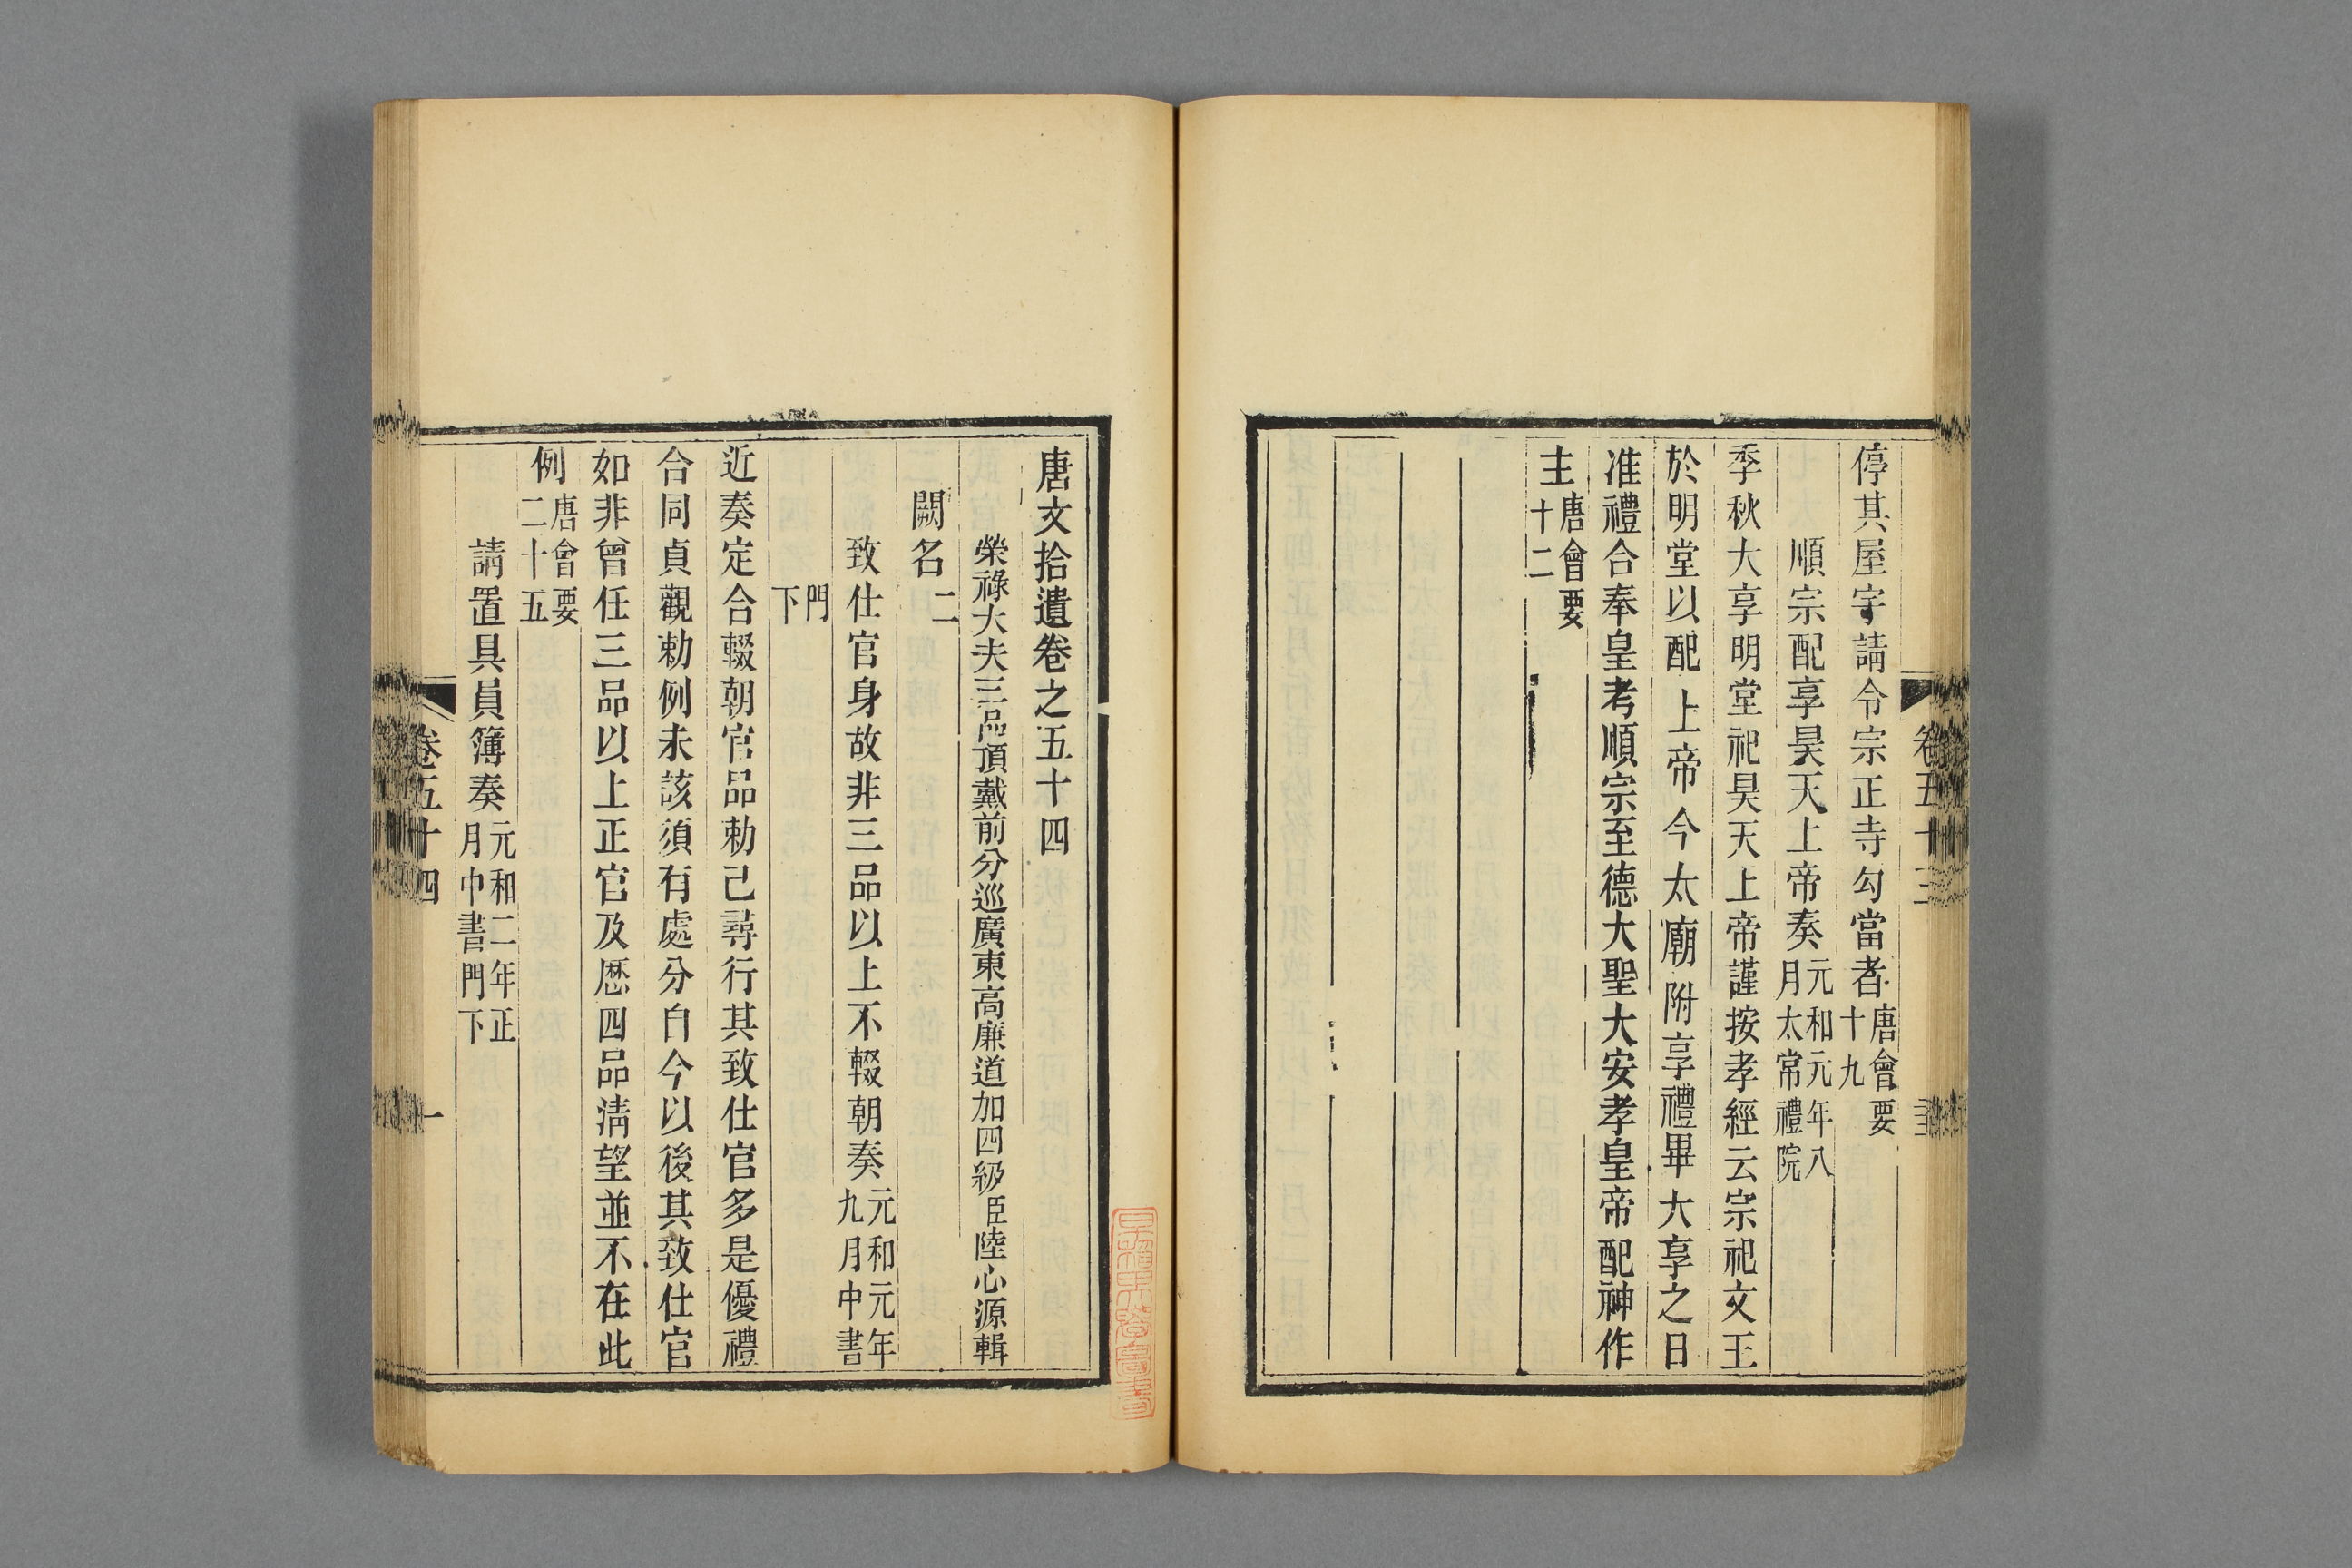 停其屋宇請令宗正寺勾當者唐會要十九
順宗配享昊天上帝奏元和元年八月太常禮院
季秋大享明堂祀昊天上帝謹按孝經云宗祀文王
於明堂以配上帝今太廟祔享禮畢大享之日
准禮合奉皇考順宗至德大聖大安孝皇帝配神作
主唐會要十二
唐文拾遺卷之五十四
榮祿大夫三品頂戴前分巡廣東高廉道加四級臣陸心源輯
闕名二
致仕官身故非三品以上不輟朝奏元和元年九月中書
門下
近奏定合輟朝官品勅己尋行其致仕官多是優禮
合同貞觀勅例未該須有處分自今以後其致仕官
如非曾任三品以上正官及歷四品淸望並不在此
例唐會要二十五
請置具員簿奏元和二年正月中書門下
卷五十四
一